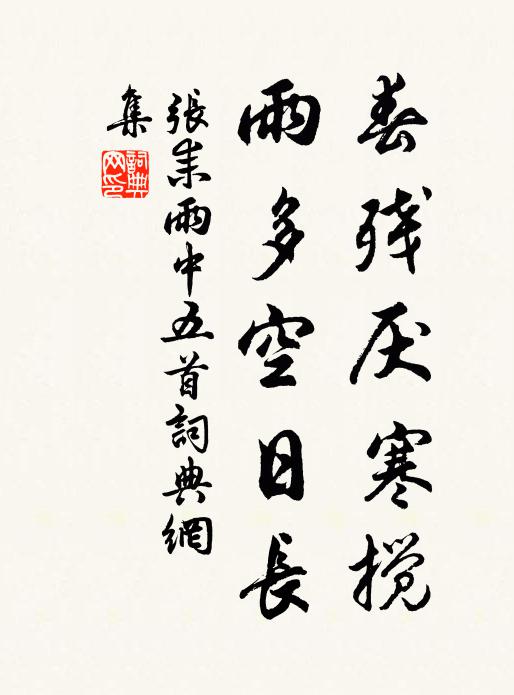 春残厌寒搅
雨多空日長
張耒雨中五首詞典網
集
詞典
网印